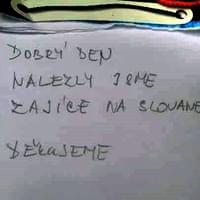 DOBRÝ DEN
NALEZLY JSME
ZAJÍCE NA SLOVANE
DĚKUJEME